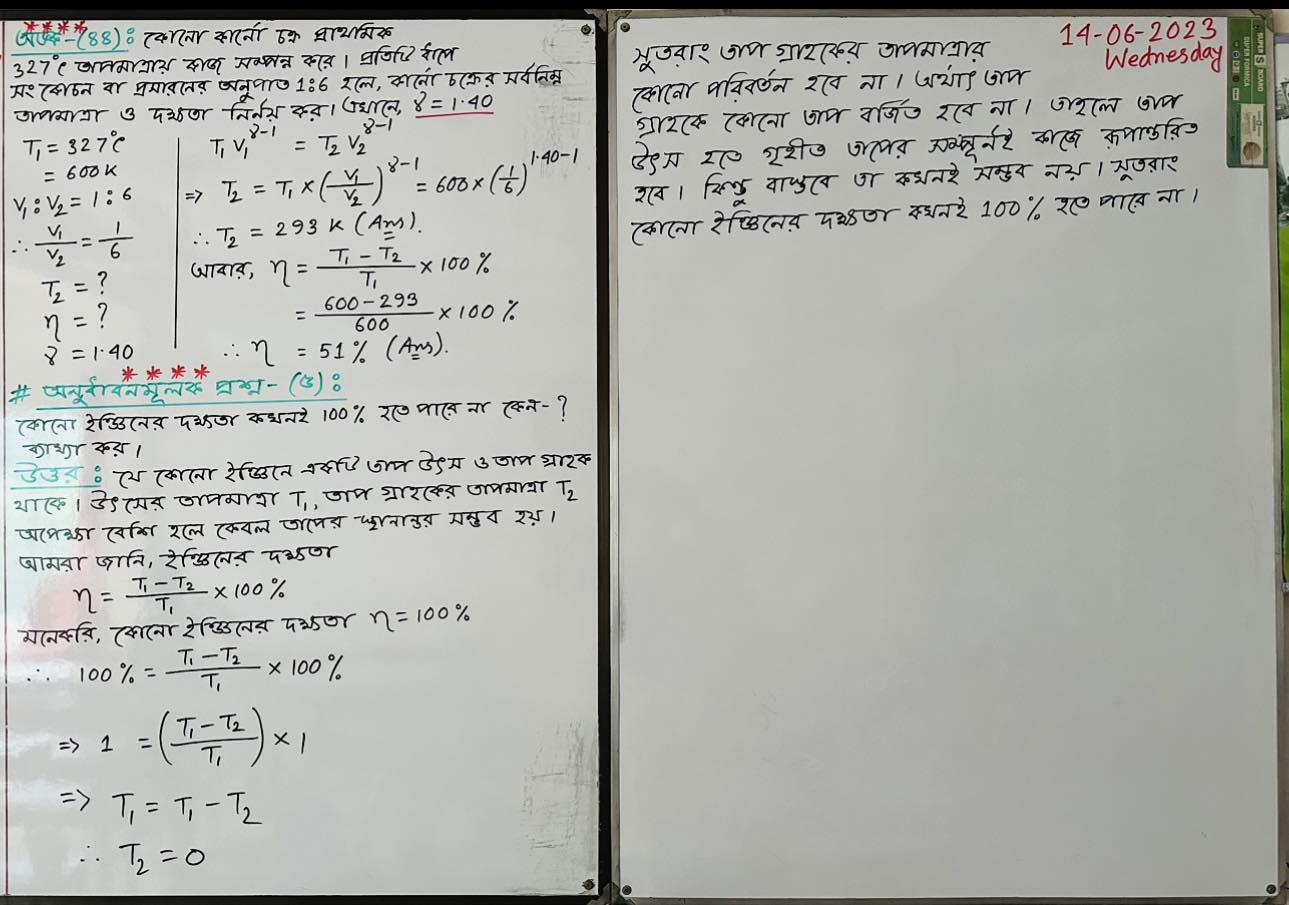 ****
অংক-(88)ঃ কোনো কার্নো চক্র প্রাথমিক
327°C তাপমাত্রায় কাজ সম্পন্ন করে। প্রতিটি ধাপে
সংকোচন বা প্রসারনের অনুপাত 1:6 হলে, কার্নো চক্রের সর্বনিম্ন
তাপমাত্রা ও দক্ষতা নির্নয় কর। এখানে, γ = 1.40
T₁ = 327°C
= 600K
V₁ : V₂ = 1 : 6
∴ V₁/V₂ = 1/6
T₂ = ?
η = ?
γ = 1.40
T₁V₁^(γ-1) = T₂V₂^(γ-1)
⇒ T₂ = T₁ × (V₁/V₂)^(γ-1) = 600 × (1/6)^(1.40-1)
∴ T₂ = 293 K (Ans).
আবার, η = (T₁ - T₂)/T₁ × 100%
= (600 - 293)/600 × 100%
∴ η = 51% (Ans).
****
# অনুধাবনমূলক প্রশ্ন- (৫)ঃ
কোনো ইঞ্জিনের দক্ষতা কখনই 100% হতে পারে না কেন- ?
ব্যাখ্যা কর।
উত্তরঃ যে কোনো ইঞ্জিনে একটি তাপ উৎস ও তাপ গ্রাহক
থাকে। উৎসের তাপমাত্রা T₁, তাপ গ্রাহকের তাপমাত্রা T₂
অপেক্ষা বেশি হলে কেবল তাপের স্থানান্তর সম্ভব হয়।
আমরা জানি, ইঞ্জিনের দক্ষতা
η = (T₁ - T₂)/T₁ × 100%
মনেকরি, কোনো ইঞ্জিনের দক্ষতা η = 100%
∴ 100% = (T₁ - T₂)/T₁ × 100%
⇒ 1 = ((T₁ - T₂)/T₁) × 1
⇒ T₁ = T₁ - T₂
∴ T₂ = 0
14-06-2023
Wednesday
সুতরাং তাপ গ্রাহকের তাপমাত্রার
কোনো পরিবর্তন হবে না। অর্থাৎ তাপ
গ্রাহকে কোনো তাপ বর্জিত হবে না। তাহলে তাপ
উৎস হতে গৃহীত তাপের সম্পূর্নই কাজে রূপান্তরিত
হবে। কিন্তু বাস্তবে তা কখনই সম্ভব নয়। সুতরাং
কোনো ইঞ্জিনের দক্ষতা কখনই 100% হতে পারে না।
SUPER S BOARD
SUPER FORMICA